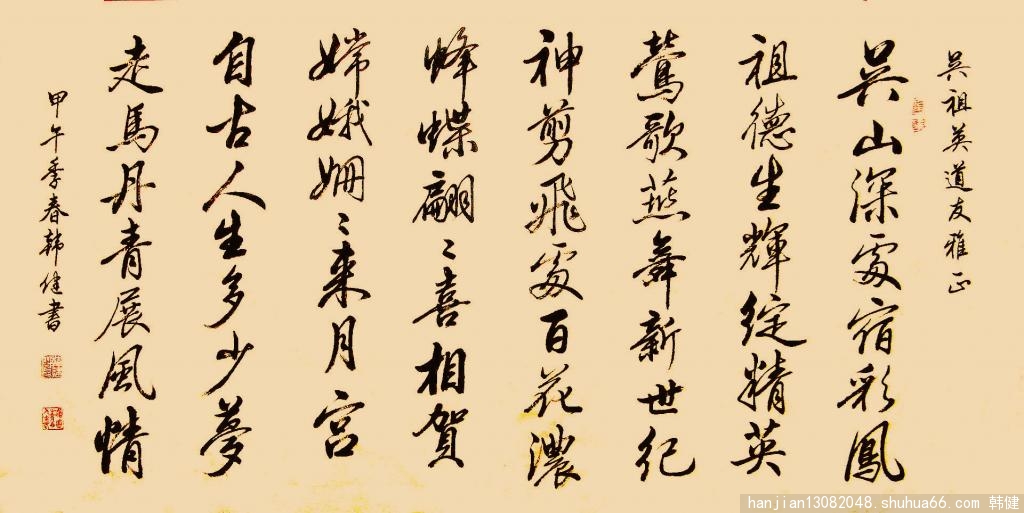 吴祖英道友雅正
吴山深處宿彩鳳
祖德生輝綻精英
鶯歌燕舞新世纪
神剪飛處百花濃
蜂蝶翩〻喜相賀
嫦娥姍〻来月宫
自古人生多少夢
走馬丹青展風情
甲午季春韩健書
hanjian13082048.shuhua66.com 韩健